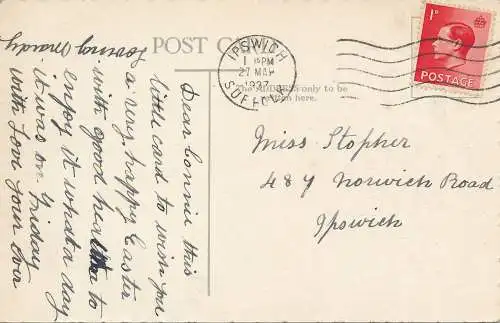 POST CARD
IPSWICH
1 PM
27 MAR
1937
SUFFOLK
1D
POSTAGE
The ADDRESS only to be
written here.
Dear Connie this
little card to wish you
a very happy Easter
with good health to
enjoy it what a day
it was on Friday
with Love your ever
Loving Maudy
Miss Stopher
484 Norwich Road
Ipswich